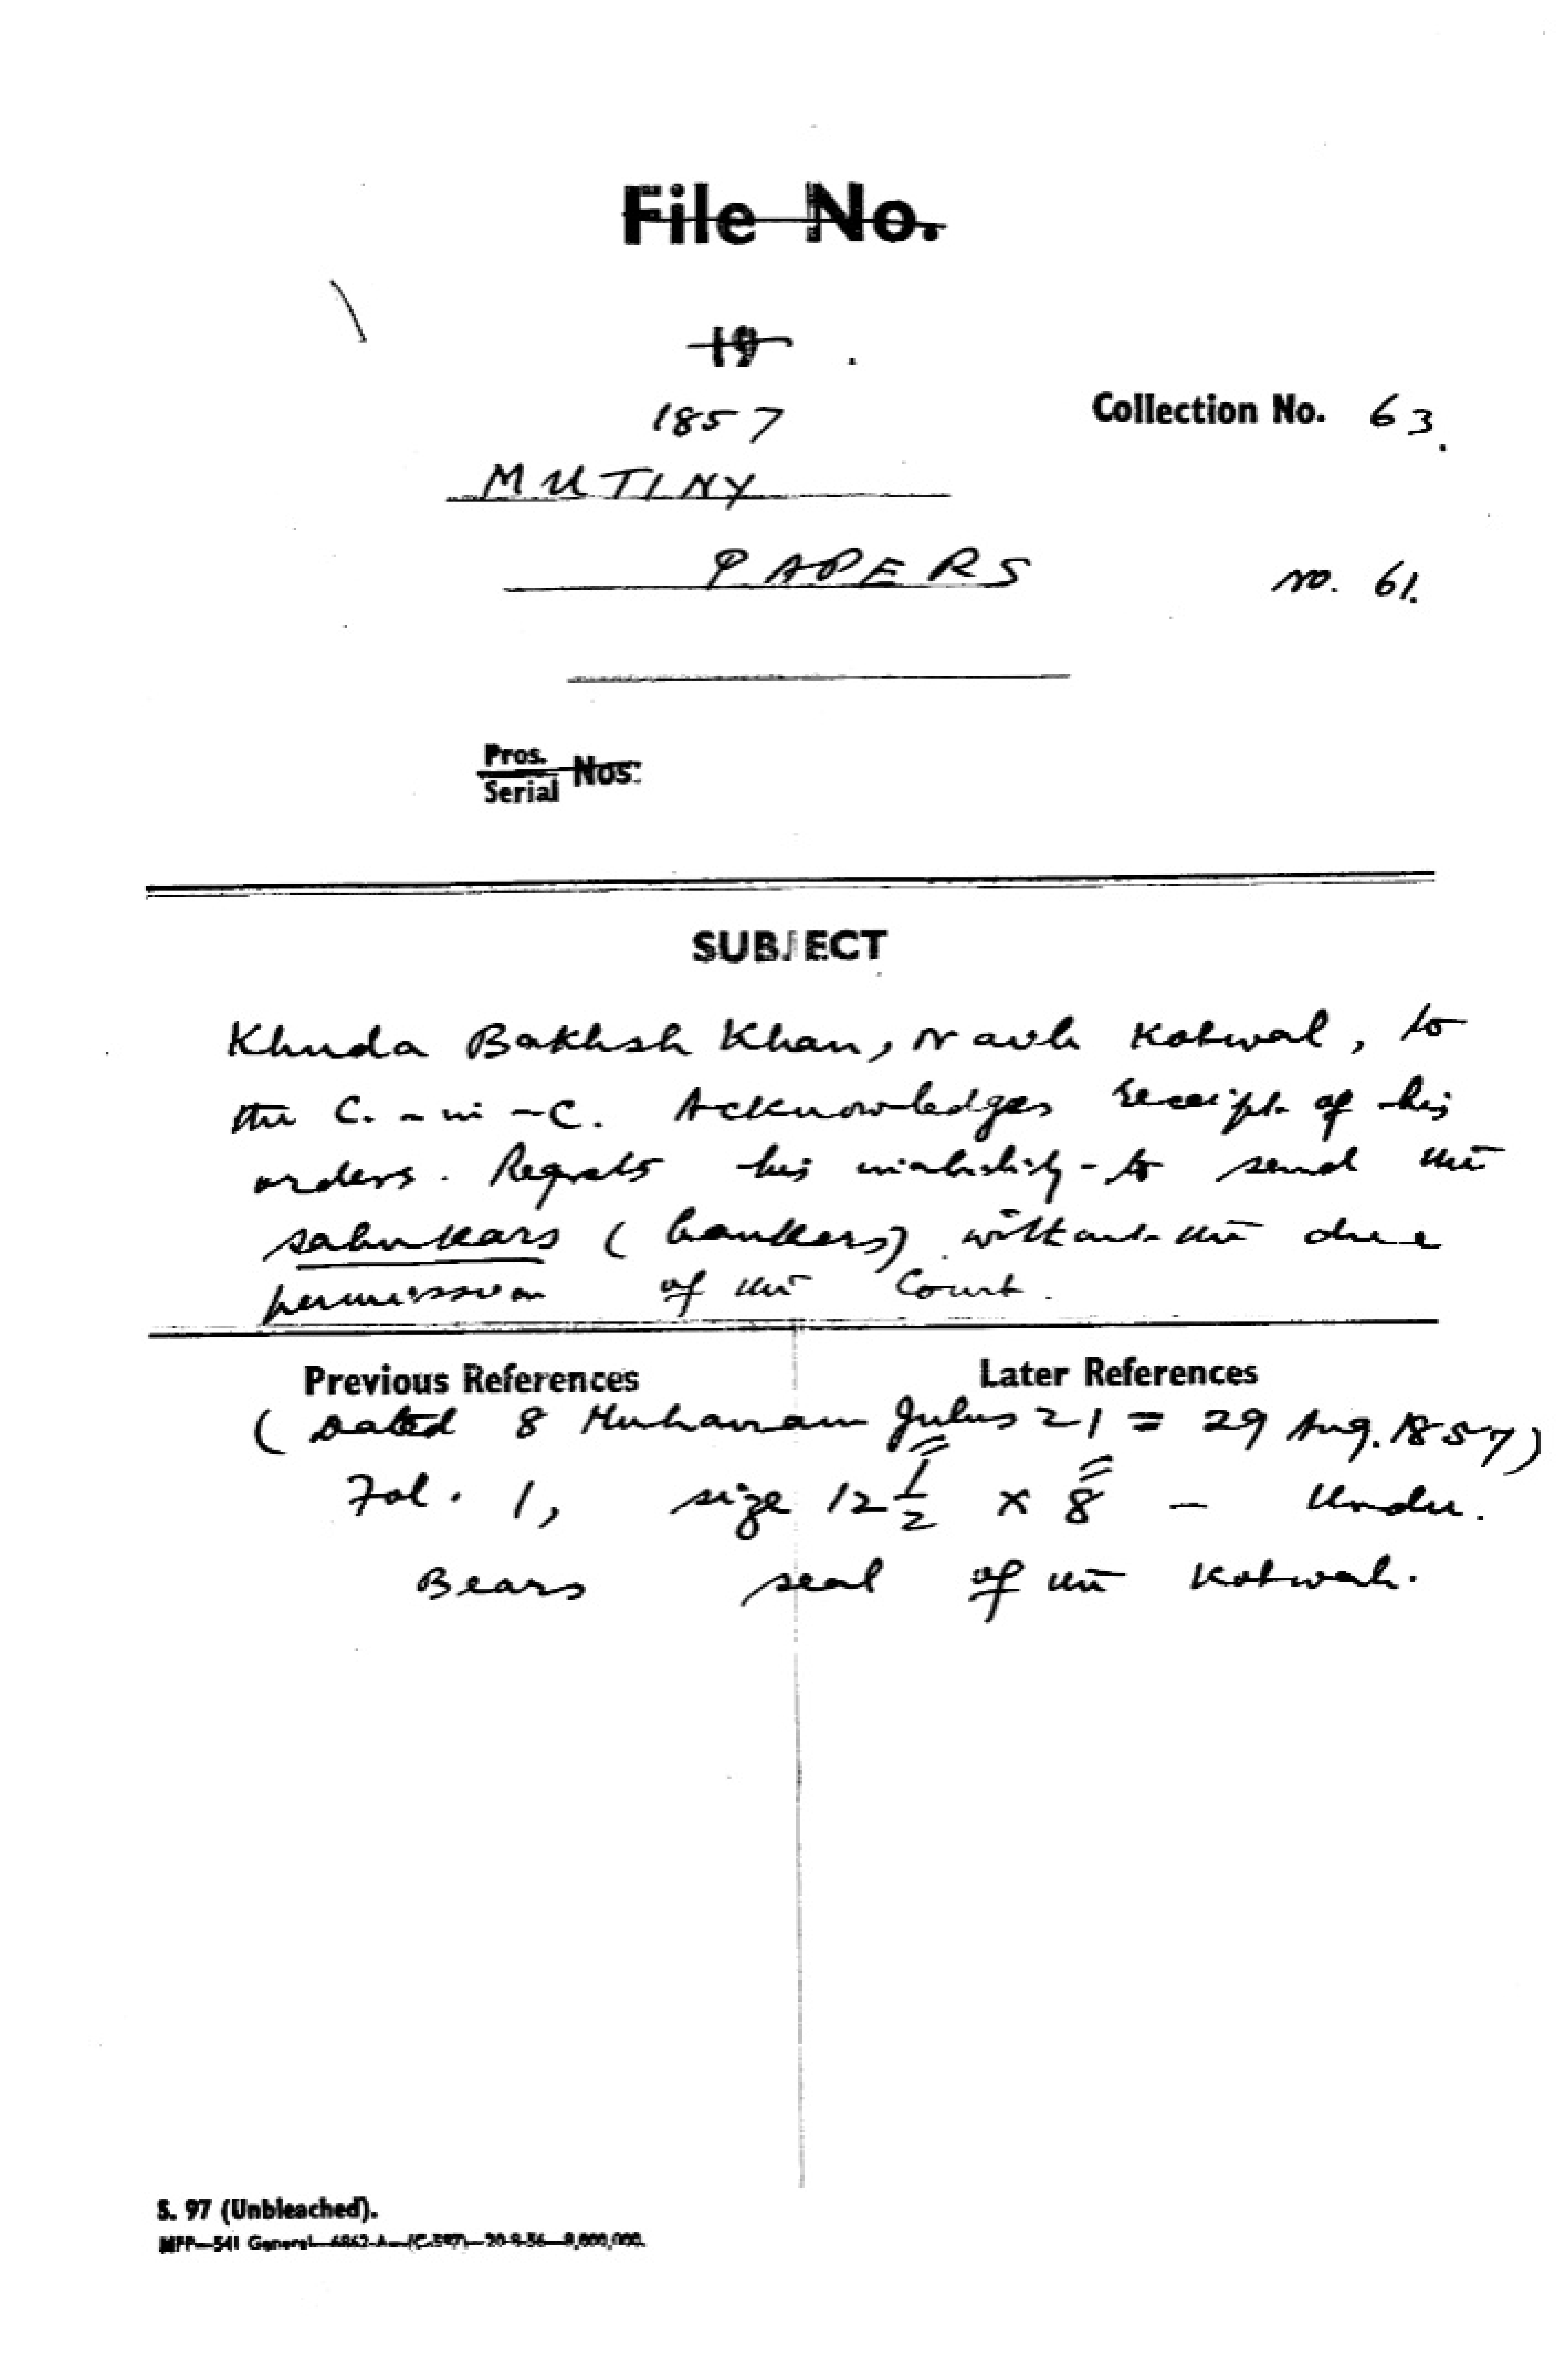 File No.
19
1857
Collection No. 63.
MUTINY
PAPERS
no. 61.
Pros.
Serial Nos.
SUBJECT
Khuda Bakhsh Khan, Naib Kotwal, to
the C.-in-C. Acknowledges receipt of his
orders. Regrets his inability to send the
sahukars (bankers) without the due
permission of the Court.
Previous References Later References
(Dated 8 Muharram Julus 21 = 29 Aug. 1857)
Fol. 1, size 12 1/2" x 8" - Urdu.
Bears seal of the Kotwal.
S. 97 (Unbleached).
MFP—541 General—6862-A—(C-597)—20-9-56—8,000,000.